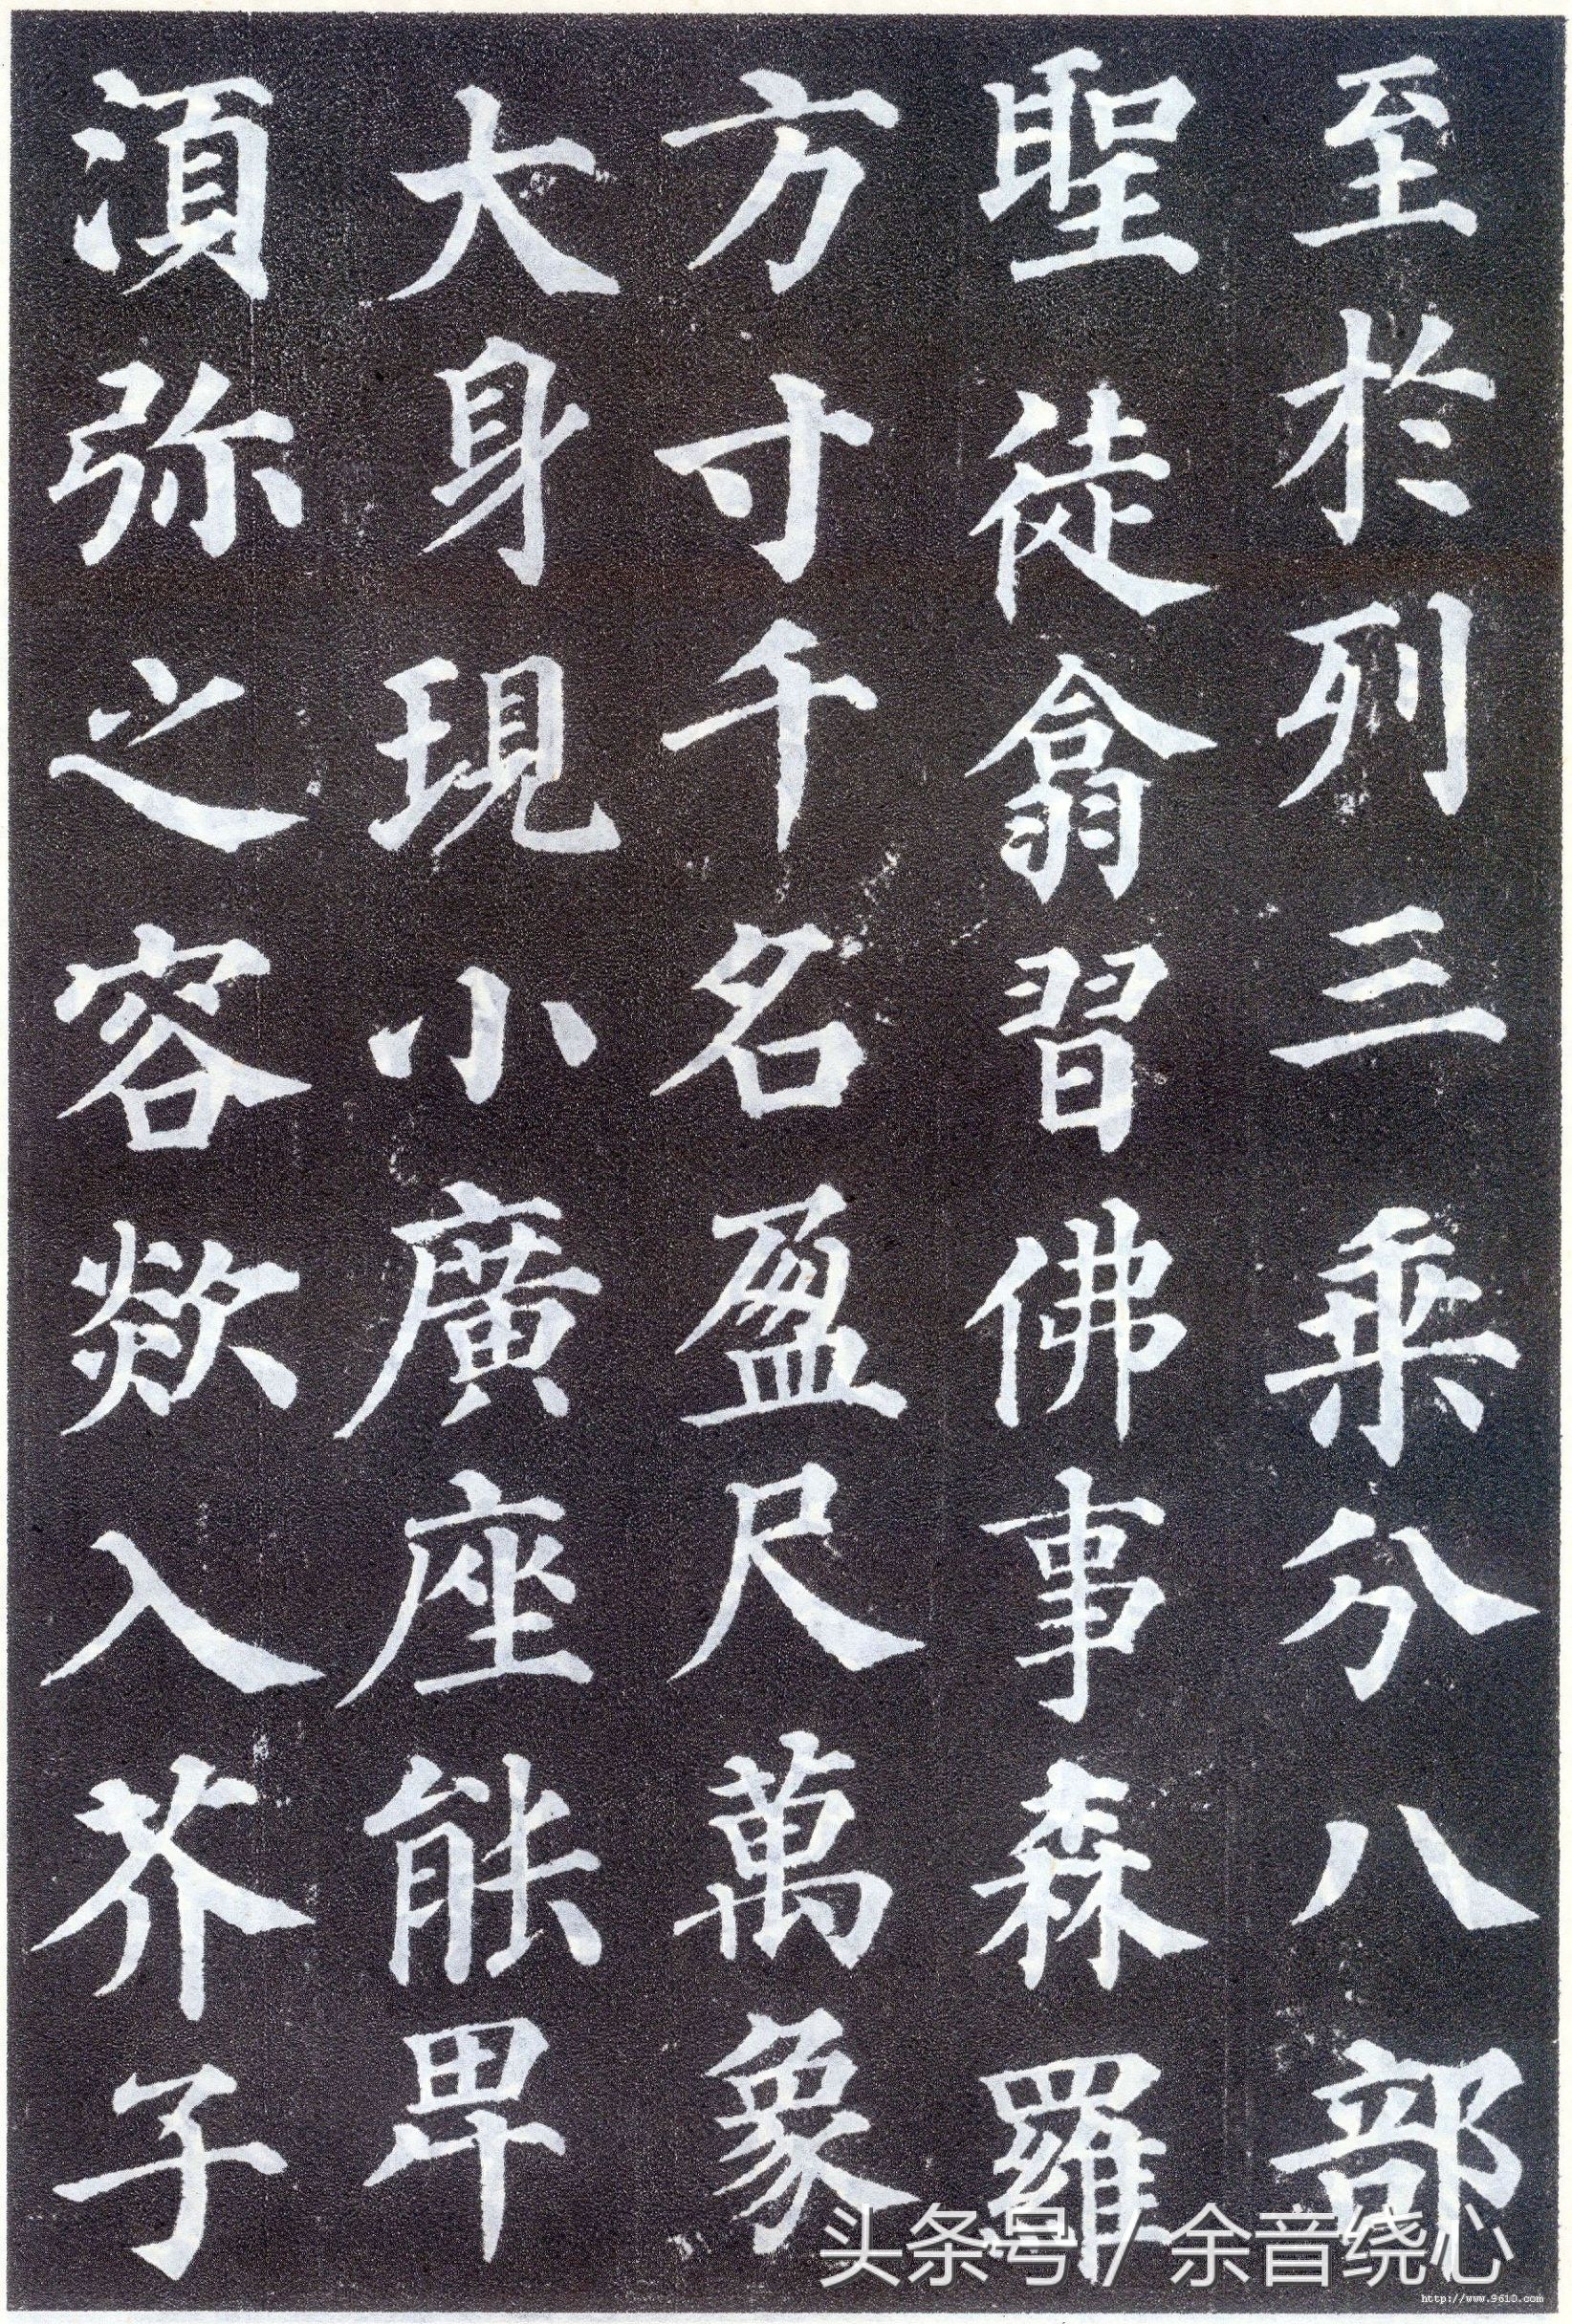 至於列三乘分八部
聖徒翕習佛事森羅
方寸千名盈尺萬象
大身現小廣座能卑
須弥之容欻入芥子
头条号 / 余音绕心
http://www.9610.com